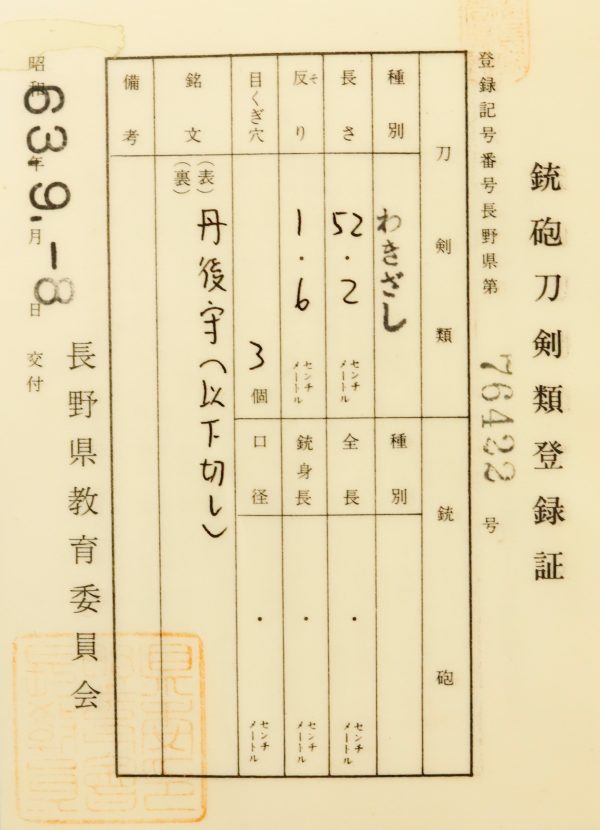 銃砲刀剣類登録証
登録記号番号長野県第 76422 号
刀剣類
種別 わきざし
長さ 52.2 センチメートル
反り そ 1.6 センチメートル
目くぎ穴 3個
銘文 (表) 丹後守(以下切し)
(裏)
備考
銃砲
種別
全長 . センチメートル
銃身長 . センチメートル
口径 . センチメートル
昭和63年9.月-8日交付
長野県教育委員会